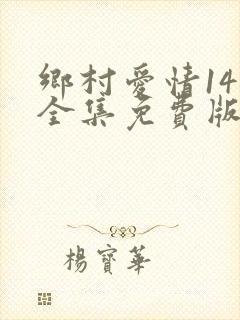 鄉村愛情14
全集免費版
楊寶華